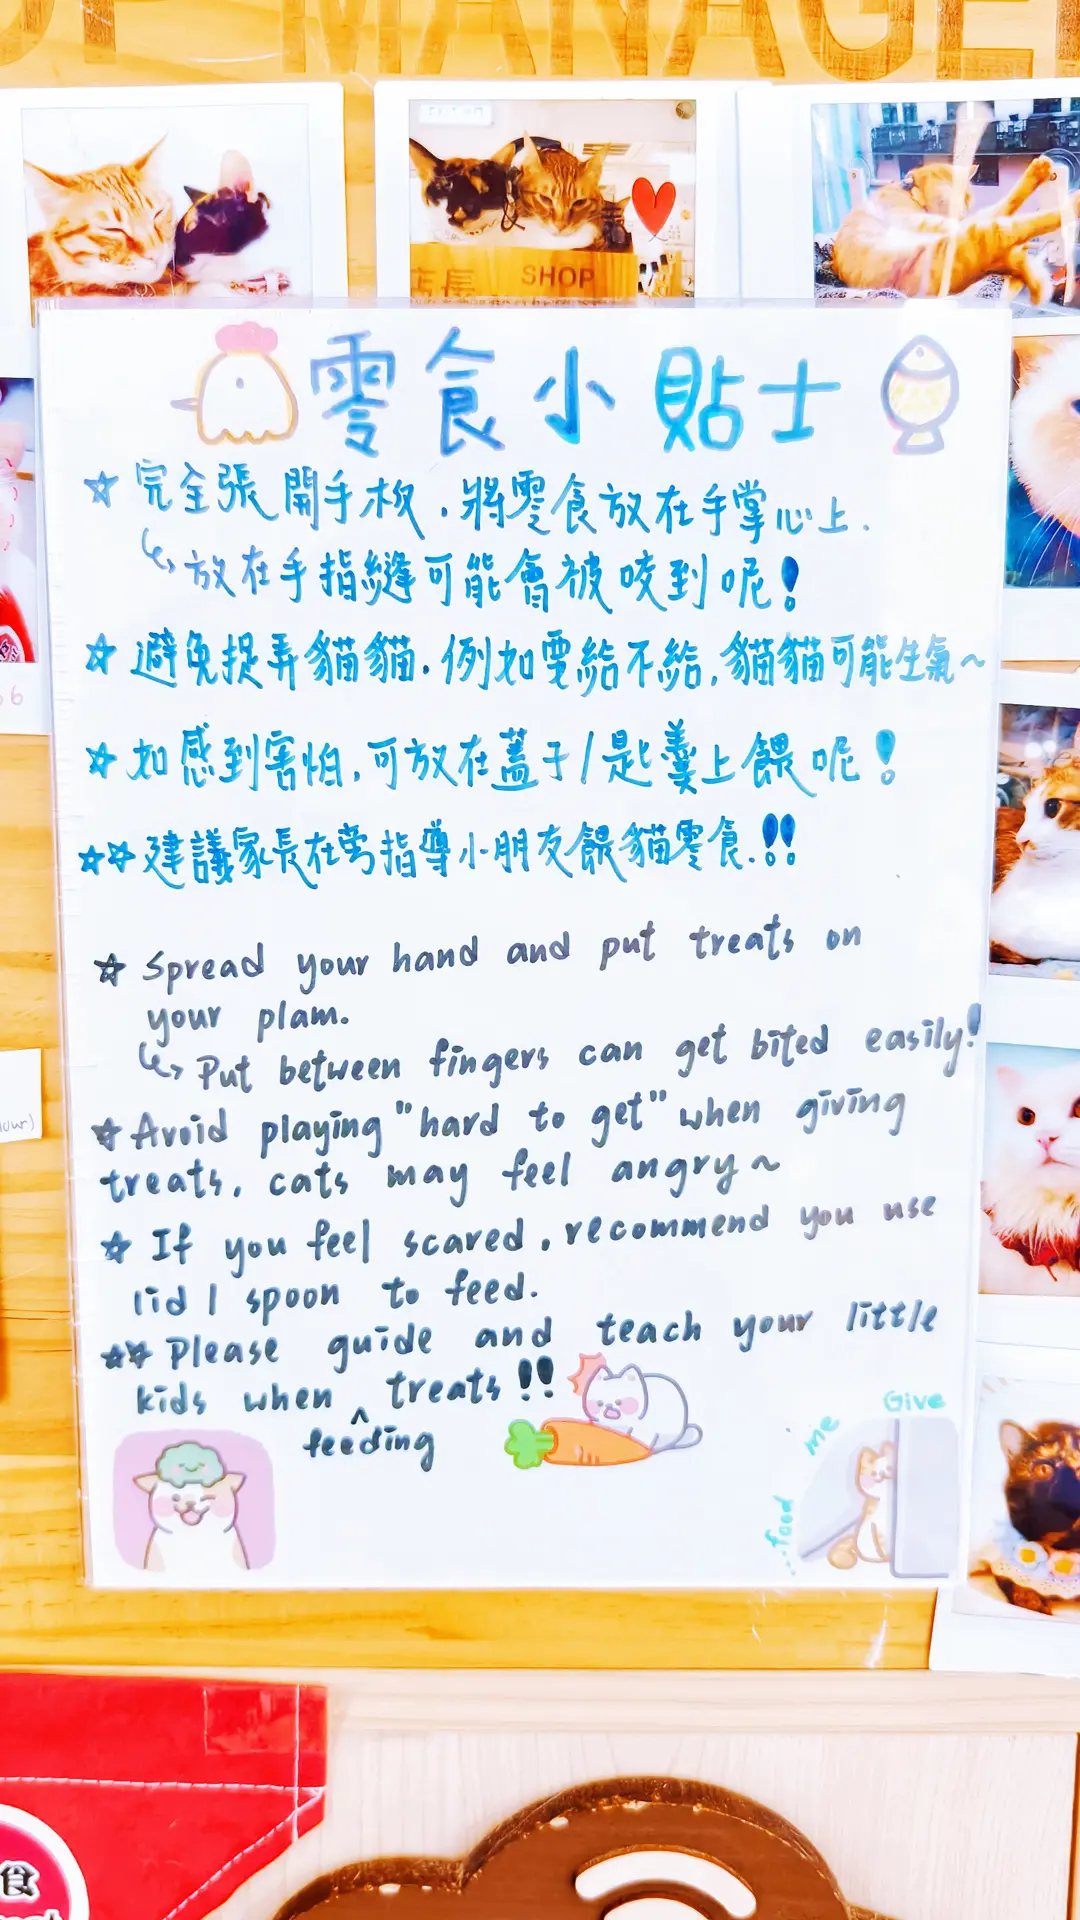 MANAGER
店長 SHOP
零食小貼士
☆ 完全張開手板,將零食放在手掌心上.
↳ 放在手指縫可能會被咬到呢!
☆ 避免捉弄貓貓.例如零給不給,貓貓可能生氣~
☆ 如感到害怕,可放在蓋子/匙羹上餵呢!
☆☆ 建議家長在旁指導小朋友餵貓零食.!!
☆ Spread your hand and put treats on
your plam.
↳ Put between fingers can get bited easily!
☆ Avoid playing "hard to get" when giving
treats, cats may feel angry~
☆ If you feel scared, recommend you use
lid / spoon to feed.
☆☆ Please guide and teach your little
kids when ^ treats!!
feeding
Give
me
...food
食